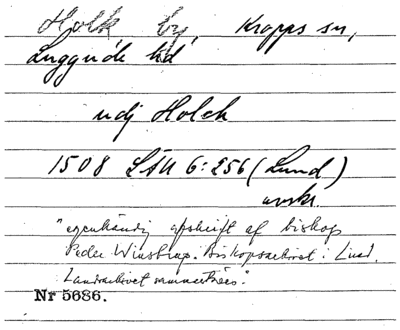 Holk, by, Kropps sn,
Luggude hd
udj Holck
1508 LÄU 6:256 (Lund)
avskr.
"egenhändig afskrift af biskop
Peder Winstrup. Biskopsarkivet i Lund.
Landsarkivet sammastädes."
Nr 5686.